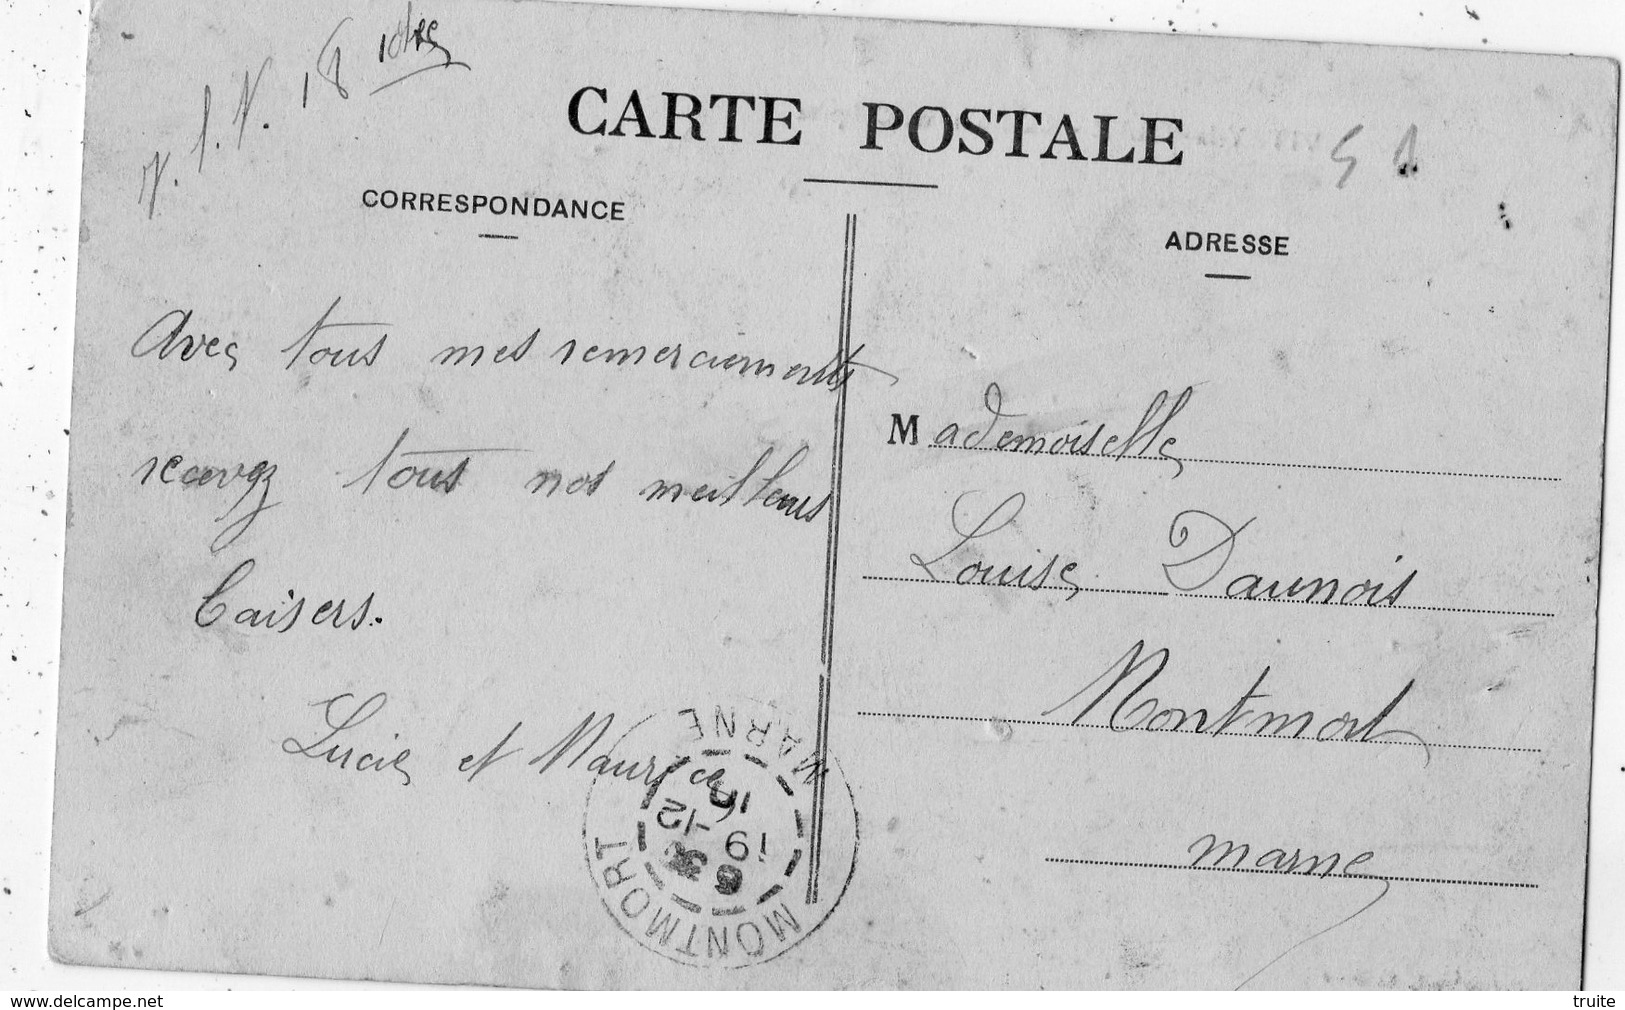 18 10bre
CARTE POSTALE
CORRESPONDANCE
Avec tous mes remerciements
recevez tous nos meilleurs
baisers.
Lucie et Maurice
ADRESSE
Mademoiselle
Louise Daunois
Montmort
Marne
MONTMORT
MARNE
www.delcampe.net
truite